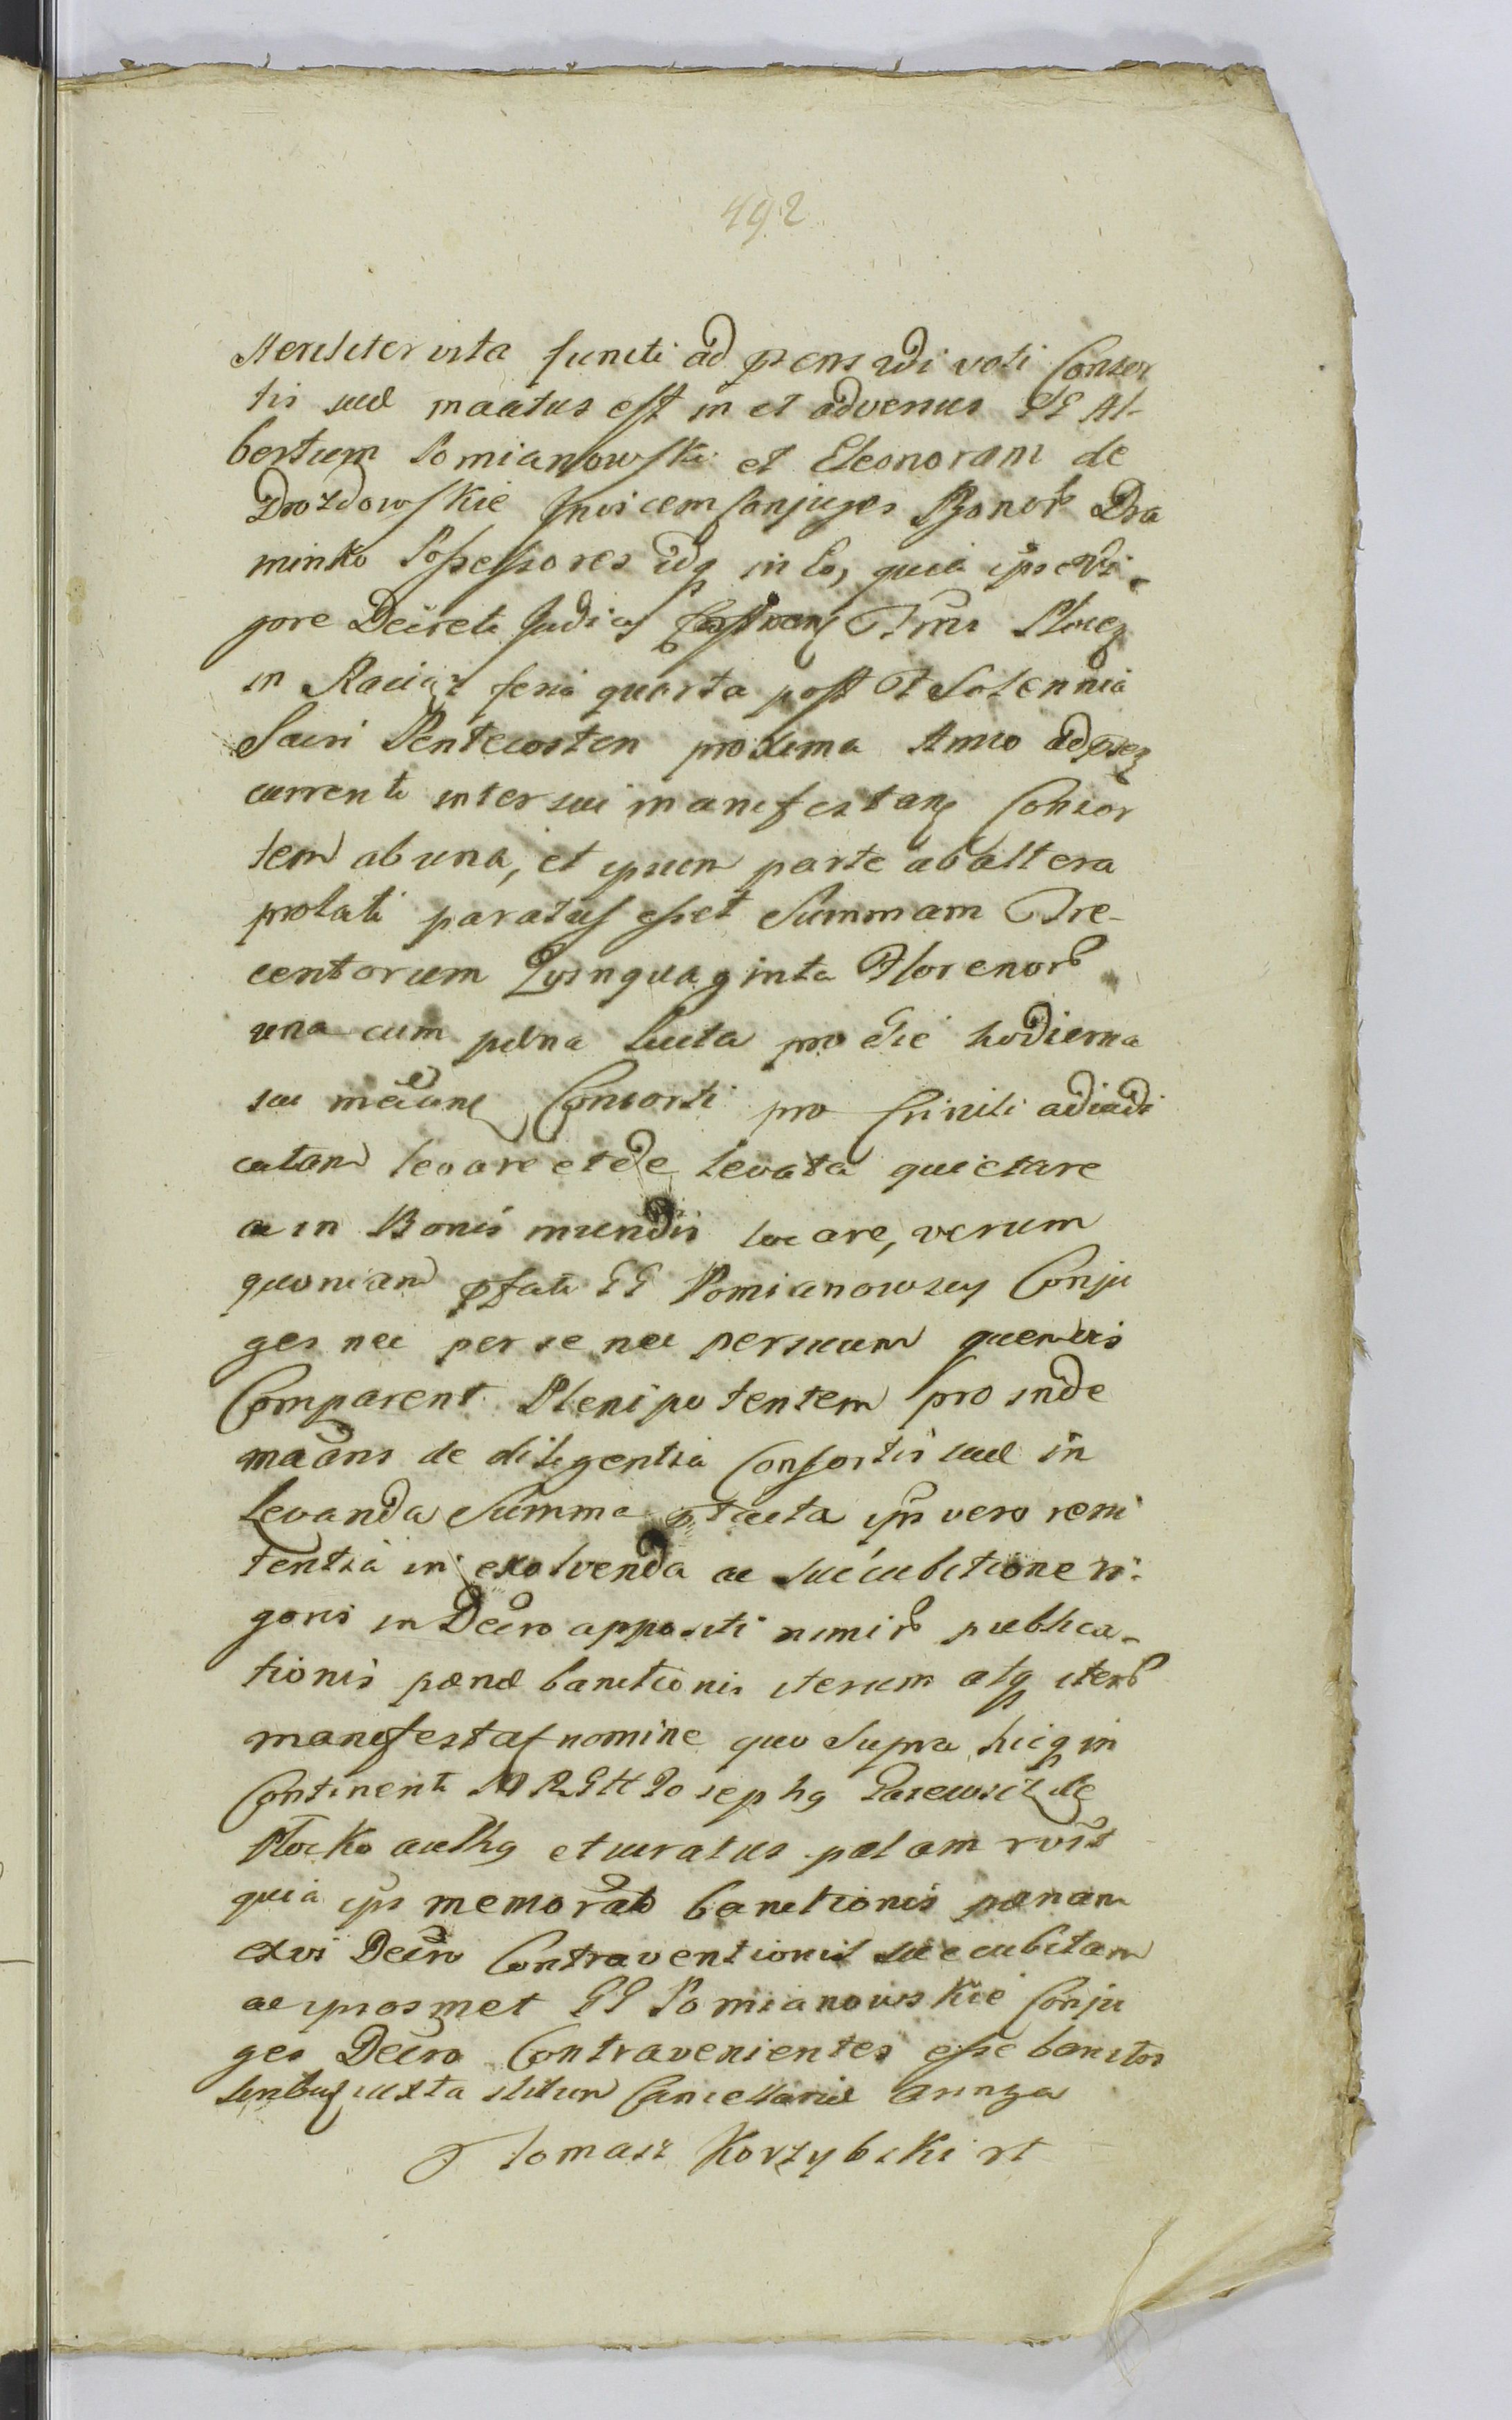 492
steriliter vita functi ad praens 2di voti Consor
tis suæ maâtus est in et adversus GG Al-
bertum Pomianowski et Eleonoram de
Drozdowskie Invicem Conjuges Bonor Dra
minko Possessores idq in Eo, quia ipse vi-
gore Decreti Judicy Castrens Trris Plocen
in Raciąz feria quarta post F Solennia
Sacri Pentecosten proxima Anno ad praens
currenti inter sui manifestan Consor
tem ab una, et ipsum parte ab altera
prolati paratus esset Summam Tre-
centorum Quinquaginta Florenor
una cum pœna lucta pro die hodierna
suæ mâtione Consorti pro Criniti adiudi
catam levare et de levata quietare
ac in Bonis mundis locare, verum
quoniam pfati GG Pomianowscy Conju
ges nec per se nec per suum quemvis
Comparent Plenipotentem pro inde
maâns de diligentia Consortis suæ in
levanda Summa ptacta ipsor vero reni
tentia in exolvenda ac succubitione ri-
goris in Decro appositi nimir publica-
tionis pœnæ banitionis iterum atq iter
manifestat nomine quo supra hicq in
Continenti MRGH Josephg de
Plocko authg et iuratus palam rvit
quia ips memorato banitionis pœnam
ex vi Decro Contraventionis succubitam
ac ipsosmet GG Pomianowskie Conju
ges Decro Contravenientes esse banitos
iuxta stilum Cancellariæ
Tomasz Korzybski rt